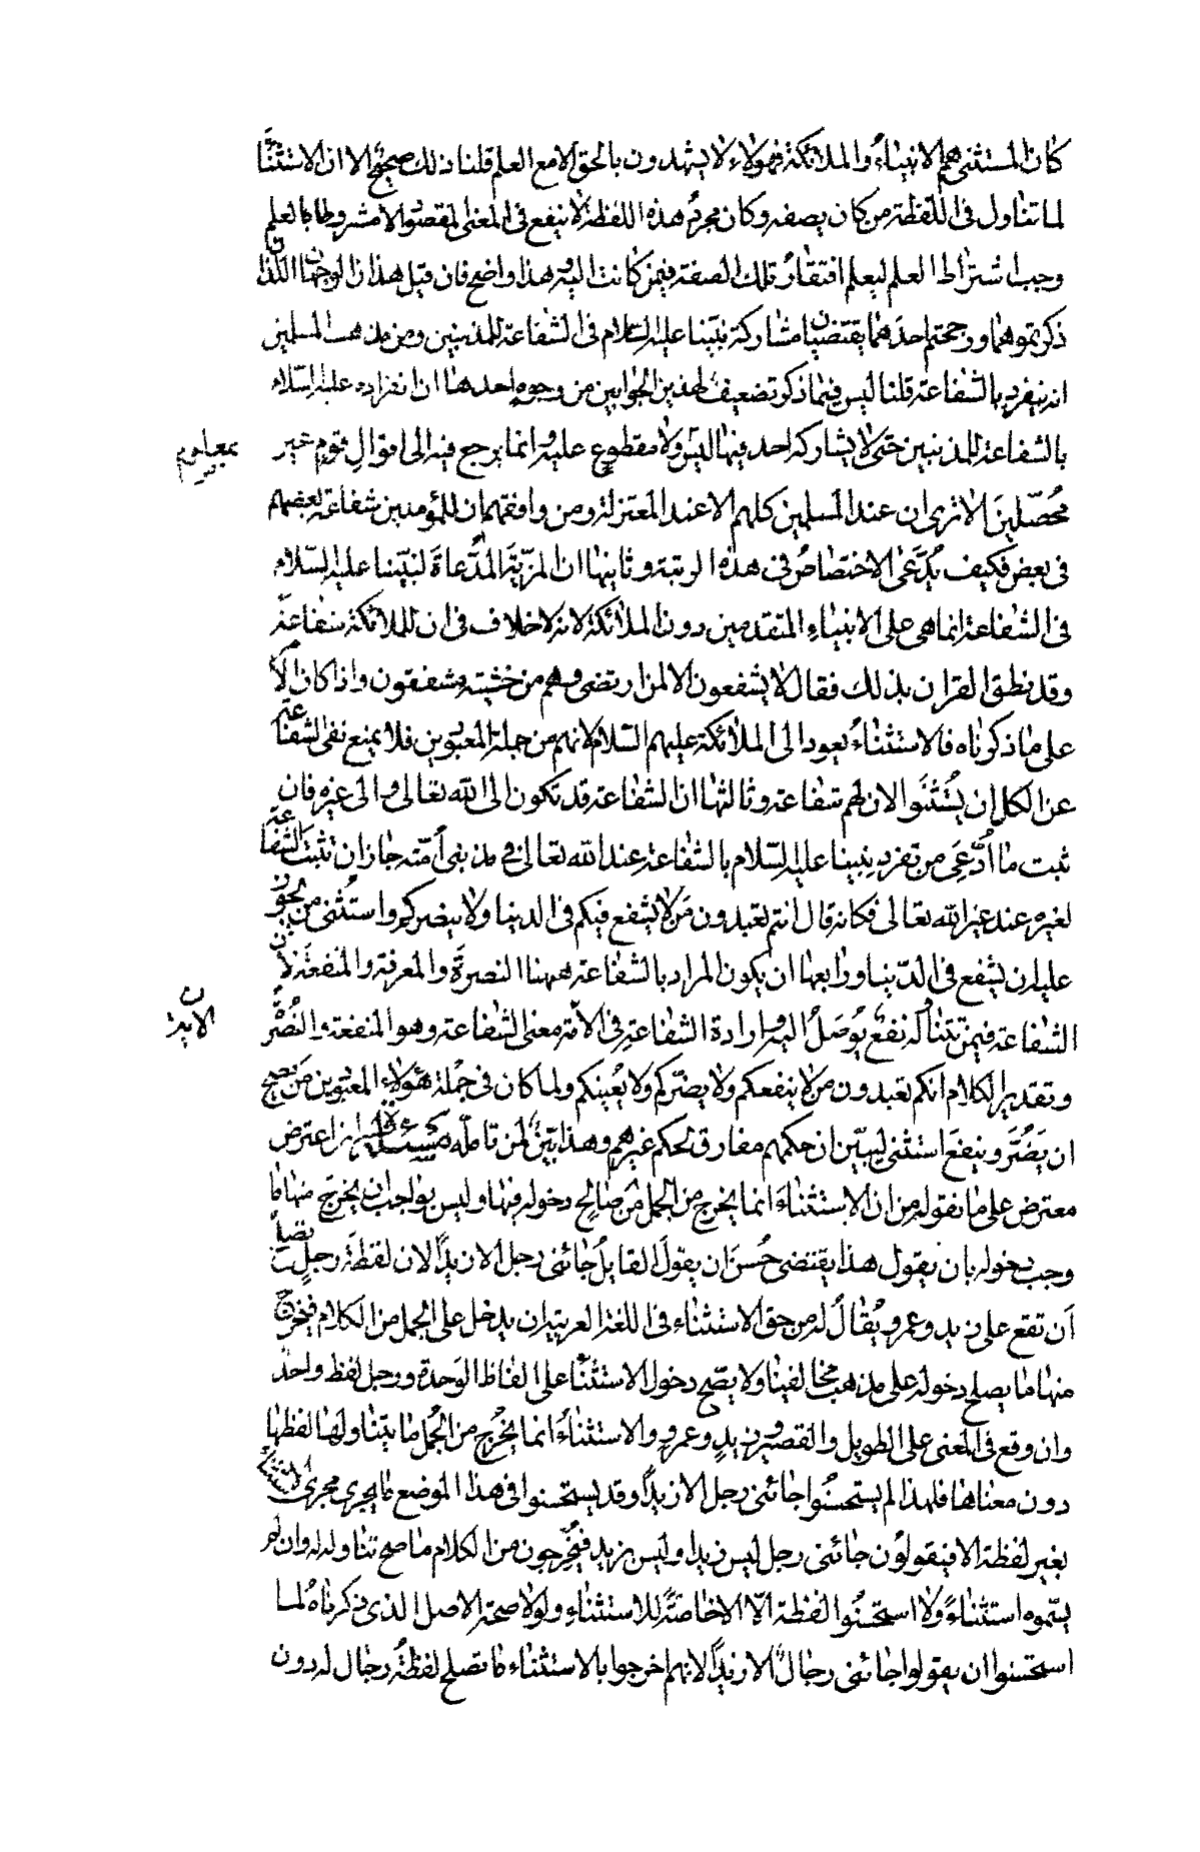 كان المستثنى هم الانبياءُ والملائكة فهولاء لا يشهدون بالحق الا مع العلم قلنا ذلك صحيحٌ الا ان الاستثناء
لما تناول في اللفظة من كان بصفه وكان مجردُ هذه اللفظة لا ينفع في المعنى المقصود الا مشروطا بالعلم
وجب اشتراط العلم ليعلم افتقارُ تلك الصفة فيمن كانت اليه وهذا واضح فان قيل هذان الوجهان اللذان
ذكرتموهما ورجحتم احدَهما يقتضيان مشاركة نبيّنا عليه السلام في الشفاعة للمذنبين ومن مذهب المسلمين
انه ينفرد بالشفاعة قلنا ليس فيما ذكر تضعيفٌ لهذين الجوابين من وجوهٍ احدها ان انفراده عليه السّلام
بالشفاعة للمذنبين حتى لا يشاركه احد فيها ليس ولا مقطوعٍ عليه وانما يرجع فيه الى اقوالِ قومٍ غير
بمعلوم
مُحصّلينَ الا ترى ان عند المسلمين كلهم الا عند المعتزلة ومن وافقهم ان للمؤمنين شفاعة بعضهم
في بعض فكيف يُدَّعى الاختصاصُ في هذه الرتبة وثانيها ان المزيّةَ المُدَّعاةَ لنبيّنا عليه السّلام
في الشفاعة انما هي على الانبياءِ المتقدمين دون الملائكة لانه لا خلاف في ان للملائكة شفاعةً
وقد نطق القران بذلك فقال لا يشفعون الا لمن ارتضى وهم من خشيته مشفقون واذا كان الامر
على ما ذكرناه فالاستثناءُ يعود الى الملائكة عليهم السّلام لانهم من جملة المعبودين فلا يمنع نفى الشفاعة
عن الكل ان يُستثنَوا لان لهم شفاعة وثالثها ان الشفاعة قد تكون الى الله تعالى والى غيره فان
ثبت ما ادُّعِىَ من تفردِ نبينا عليه السّلام بالشفاعة عند الله تعالى في مذنبى أمّته جاز ان تثبت الشفاعة
لغيره عند غير الله تعالى فكانه قال انتم تعبدون مَن لا يشفع فيكم في الدنيا ولا ينصركم واستُثنى من يجوز
عليه ان يشفع في الدّنيا ورابعها ان يكون المراد بالشفاعة ههنا النصرةَ والمعرفة والمنفعة لان
الشفاعة فيمن تتناوله نفعٌ يُوصَلُ اليه وارادة الشفاعةِ في الآية معنى الشفاعة وهو المنفعة والنُصْرَة
الايه ن
وتقدير الكلام انكم تعبدون من لا ينفعكم ولا يضرّكم ولا يُعينكم ولما كان في جُملة هؤلاءِ المعبودين من يصح
ان يَضُرَّ وينفعَ استثنى ليبيّن ان حكمهم مفارق لحكم غيرهم وهذا بيّنٌ لمن تامله مسئلة ان اعترض
معترض على ما نقوله من ان الاستثناءَ انما يخرج من الجمل مَن صَالحٍ دخوله فيها وليس بواجب ان يخرج منها ما
وجب دخوله بان يقول هذا يقتضى حُسنَ ان يقولَ القايلُ جائنى رجل الا زيدًا لان لفظةَ رجلٍ تصلح
اَن تقع على زيد وعمرو يُقالُ له من حق الاستثناء في اللغة العربية ان يدخل على الجمل من الكلام فيخرج
منها ما يصلح دخوله على مذهب مخالفينا ولا يصّح دخول الاستثناء على الفاظ الوَحدة ورجل لفظ واحد
وان وقع في المعنى على الطويل والقصير وزيدٍ وعمروٍ والاستثناءُ انما يُخْرِج من الجُمل ما يتناولها لفظها
دون معناها فلهذا لم يستحسنُوا جائنى رجل الا زيدًا وقد يستحسنوا في هذا الموضع ما يجرى مجرى الاستثناء
بغير لفظة الا فيقولوُن جائنى رجل ليس زيدا وليس بزيد فيُخْرجون من الكلام ما صح تناوله له وان لم
يسمّوه استثناءً ولا استحسنُوا لفظة الّا الا خاصّةً للاستثناءِ ولولا صحة الاصل الذى ذكرناهُ لما
استحسنوا ان يقولوا جائنى رجالٌ الا زيدًا لانهم اخرجوا بالاستثناء ما تصلح لفظةُ رجال له دون